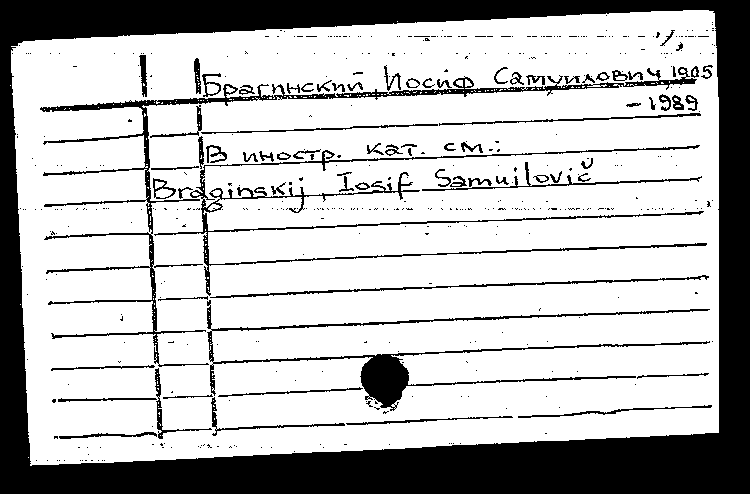 Брагинский, Иосиф Самуилович, 1905
- 1989
В иностр. кат. см.:
Braginskij, Iosif Samuilovič